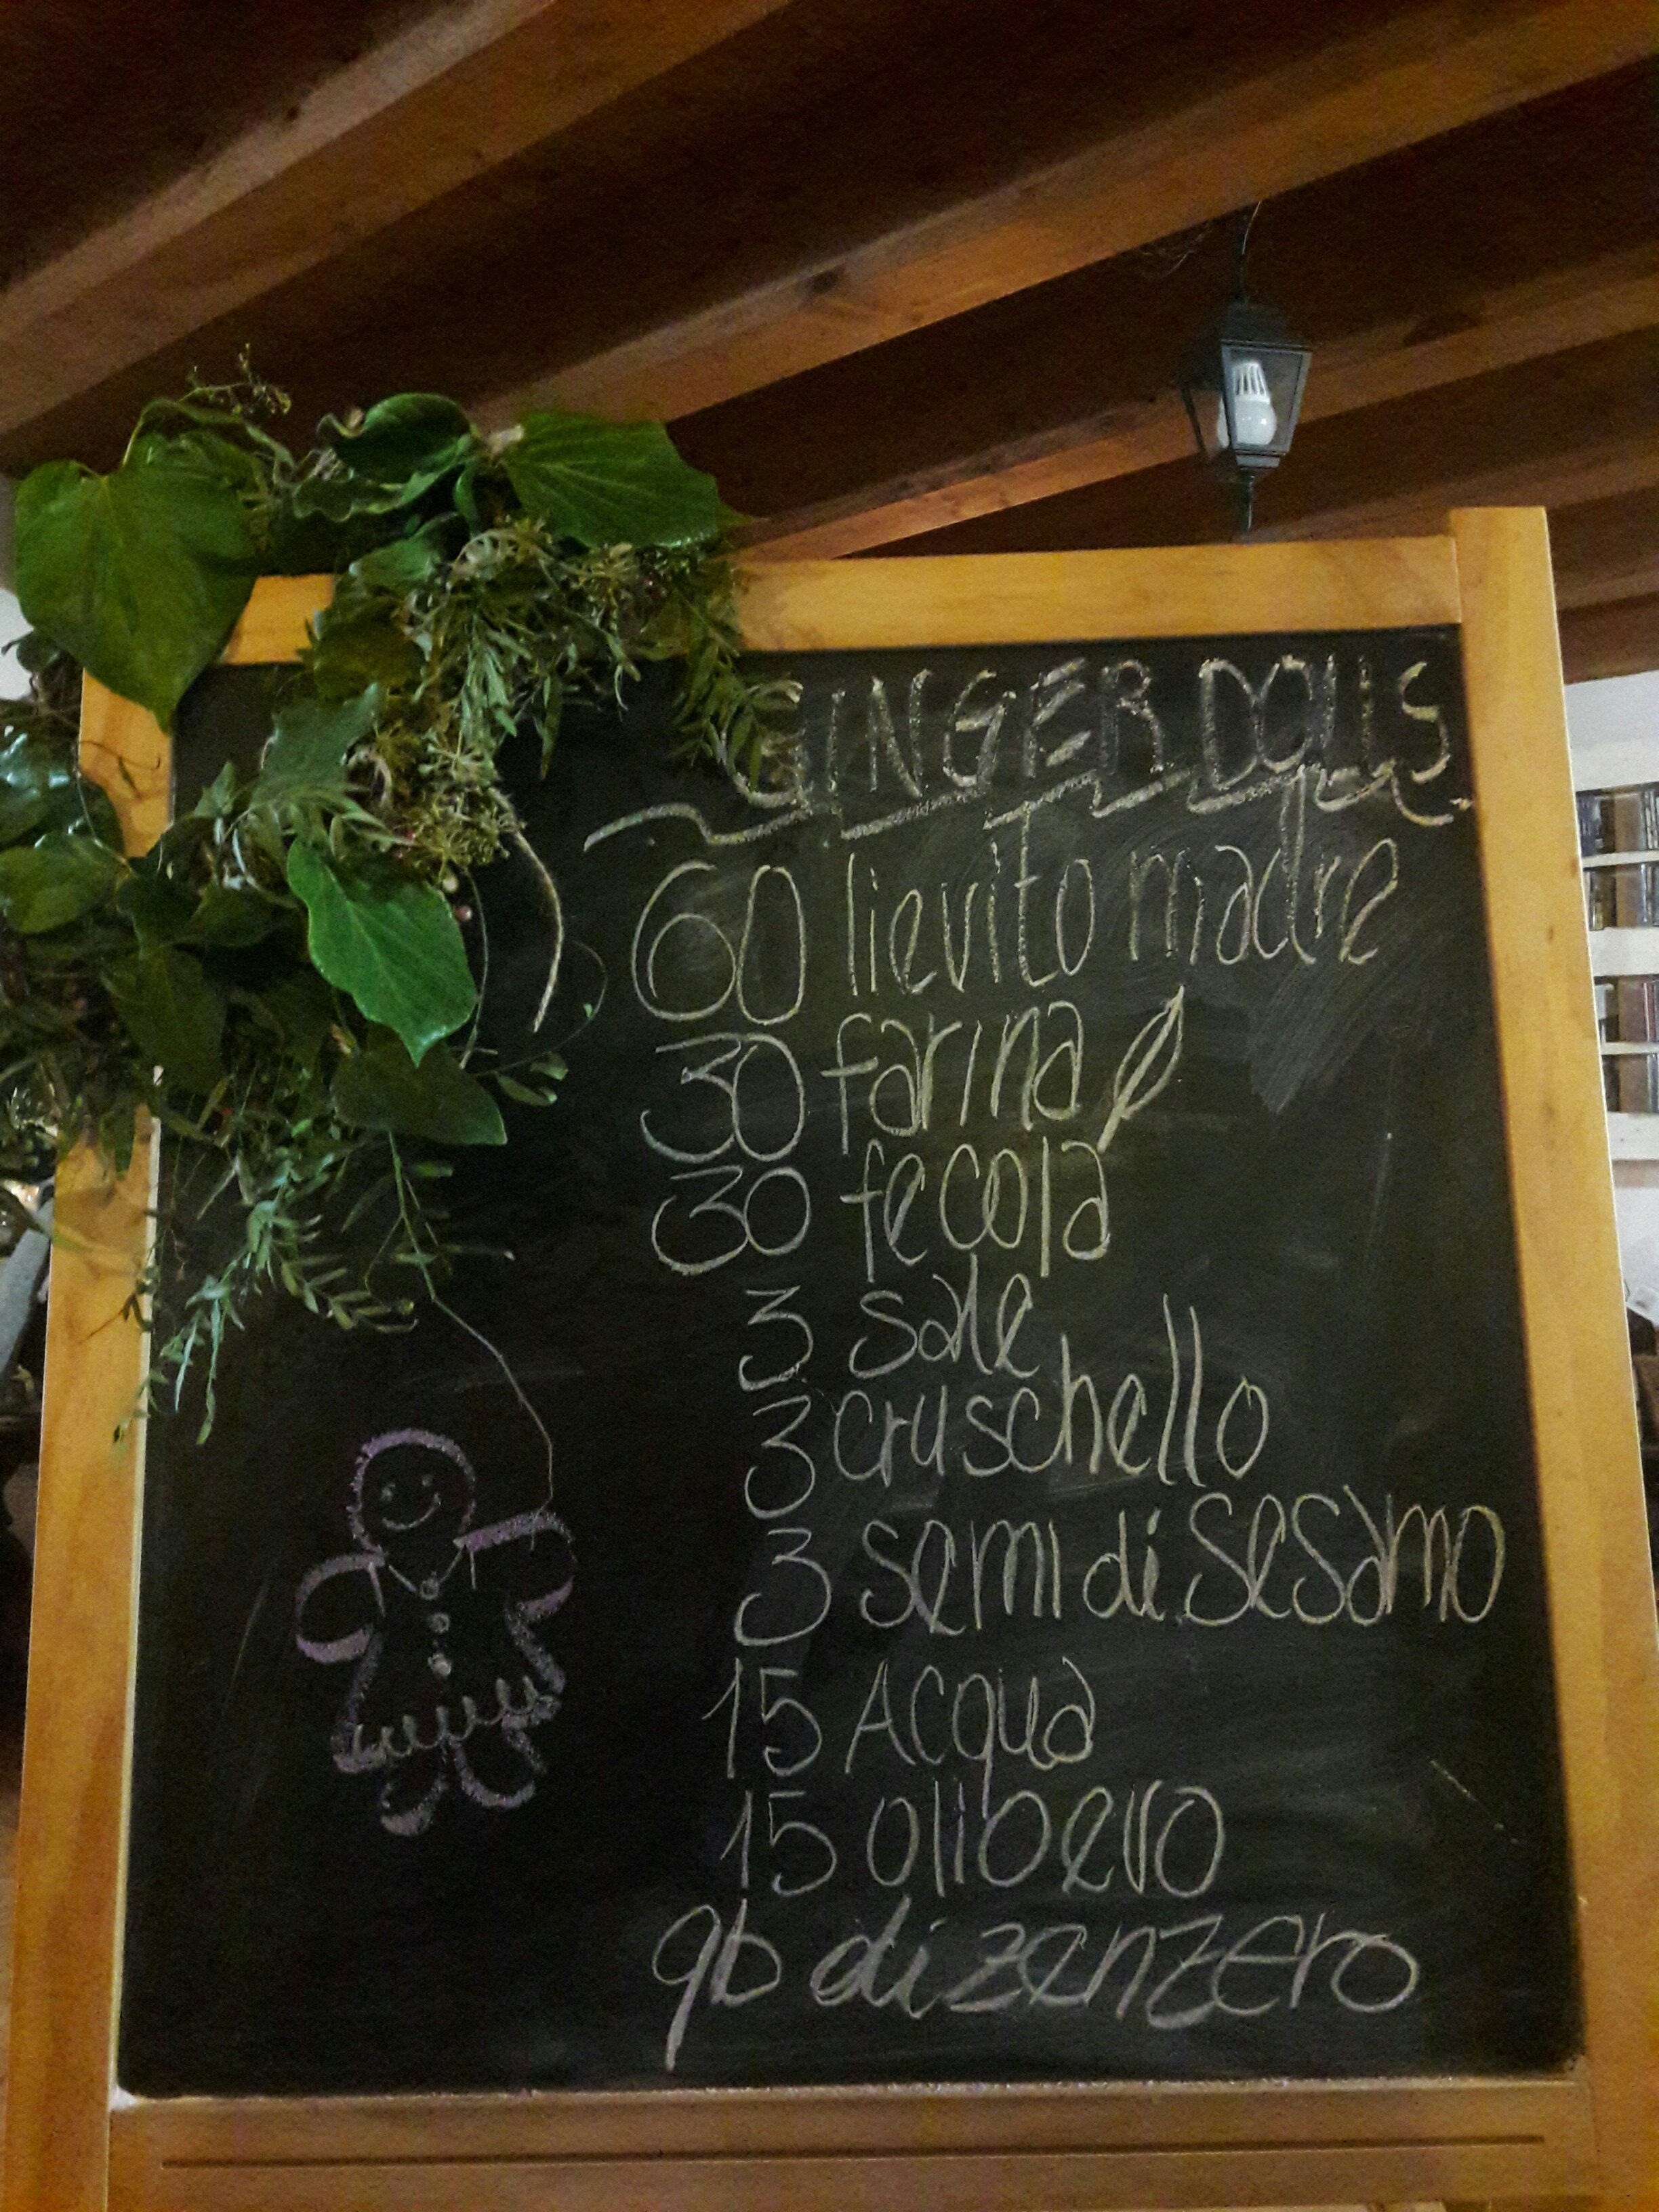 GINGER DOLLS
60 lievito madre
30 farina
30 fecola
3 sale
3 cruschello
3 semi di sesamo
15 Acqua
15 oli o evo
qb di zenzero